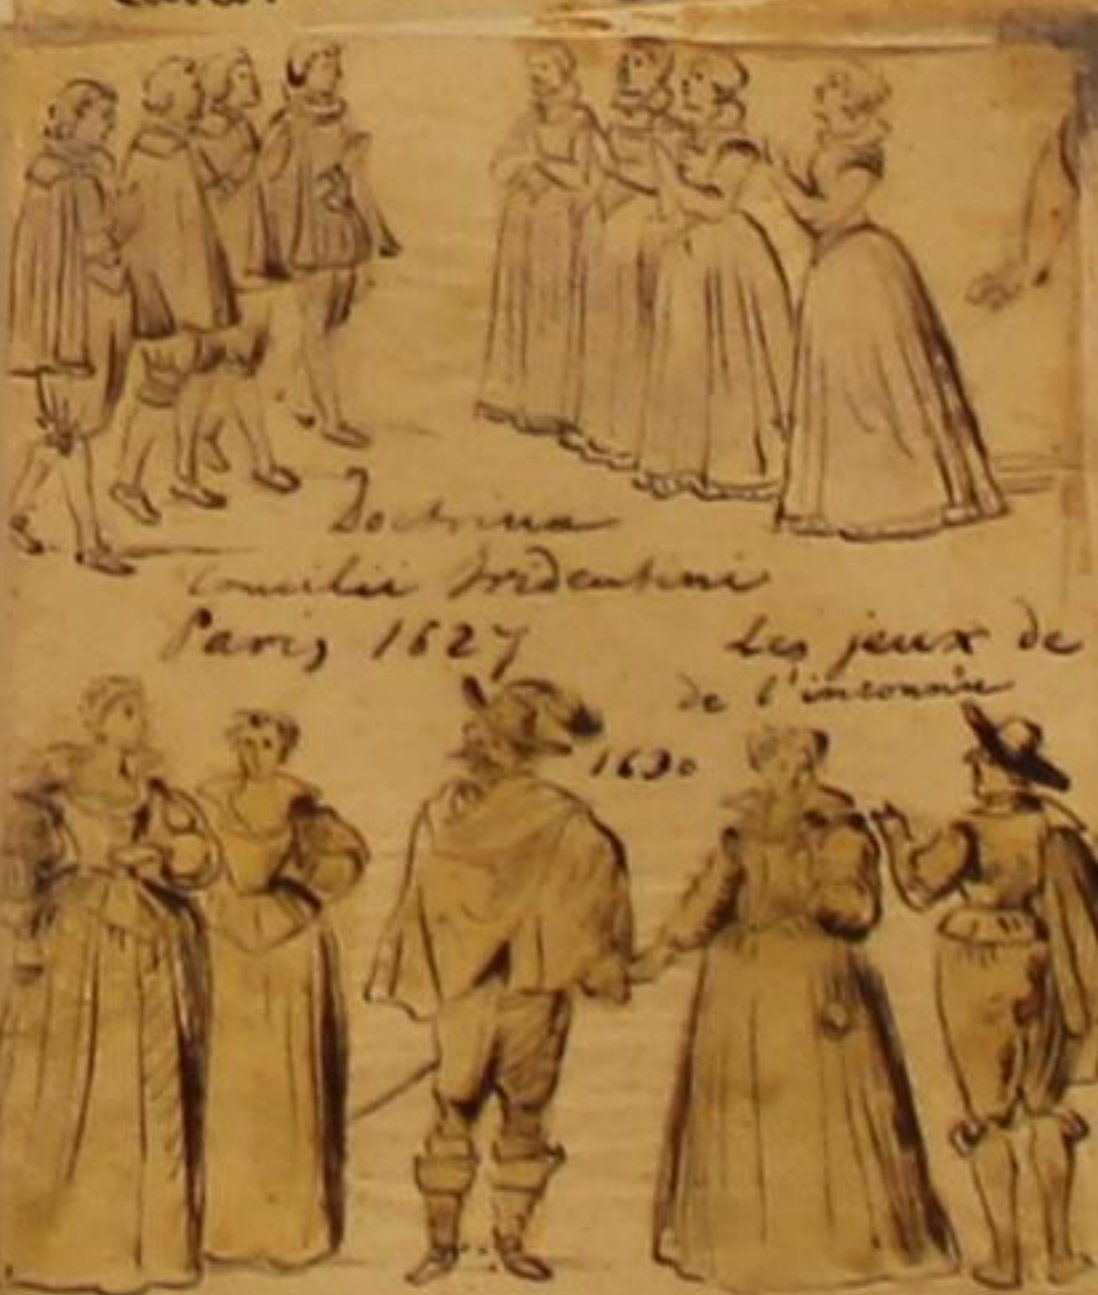 Doctrina
Concilii Tridentini
Paris 1627
Les jeux de
de l'inconnu
1630